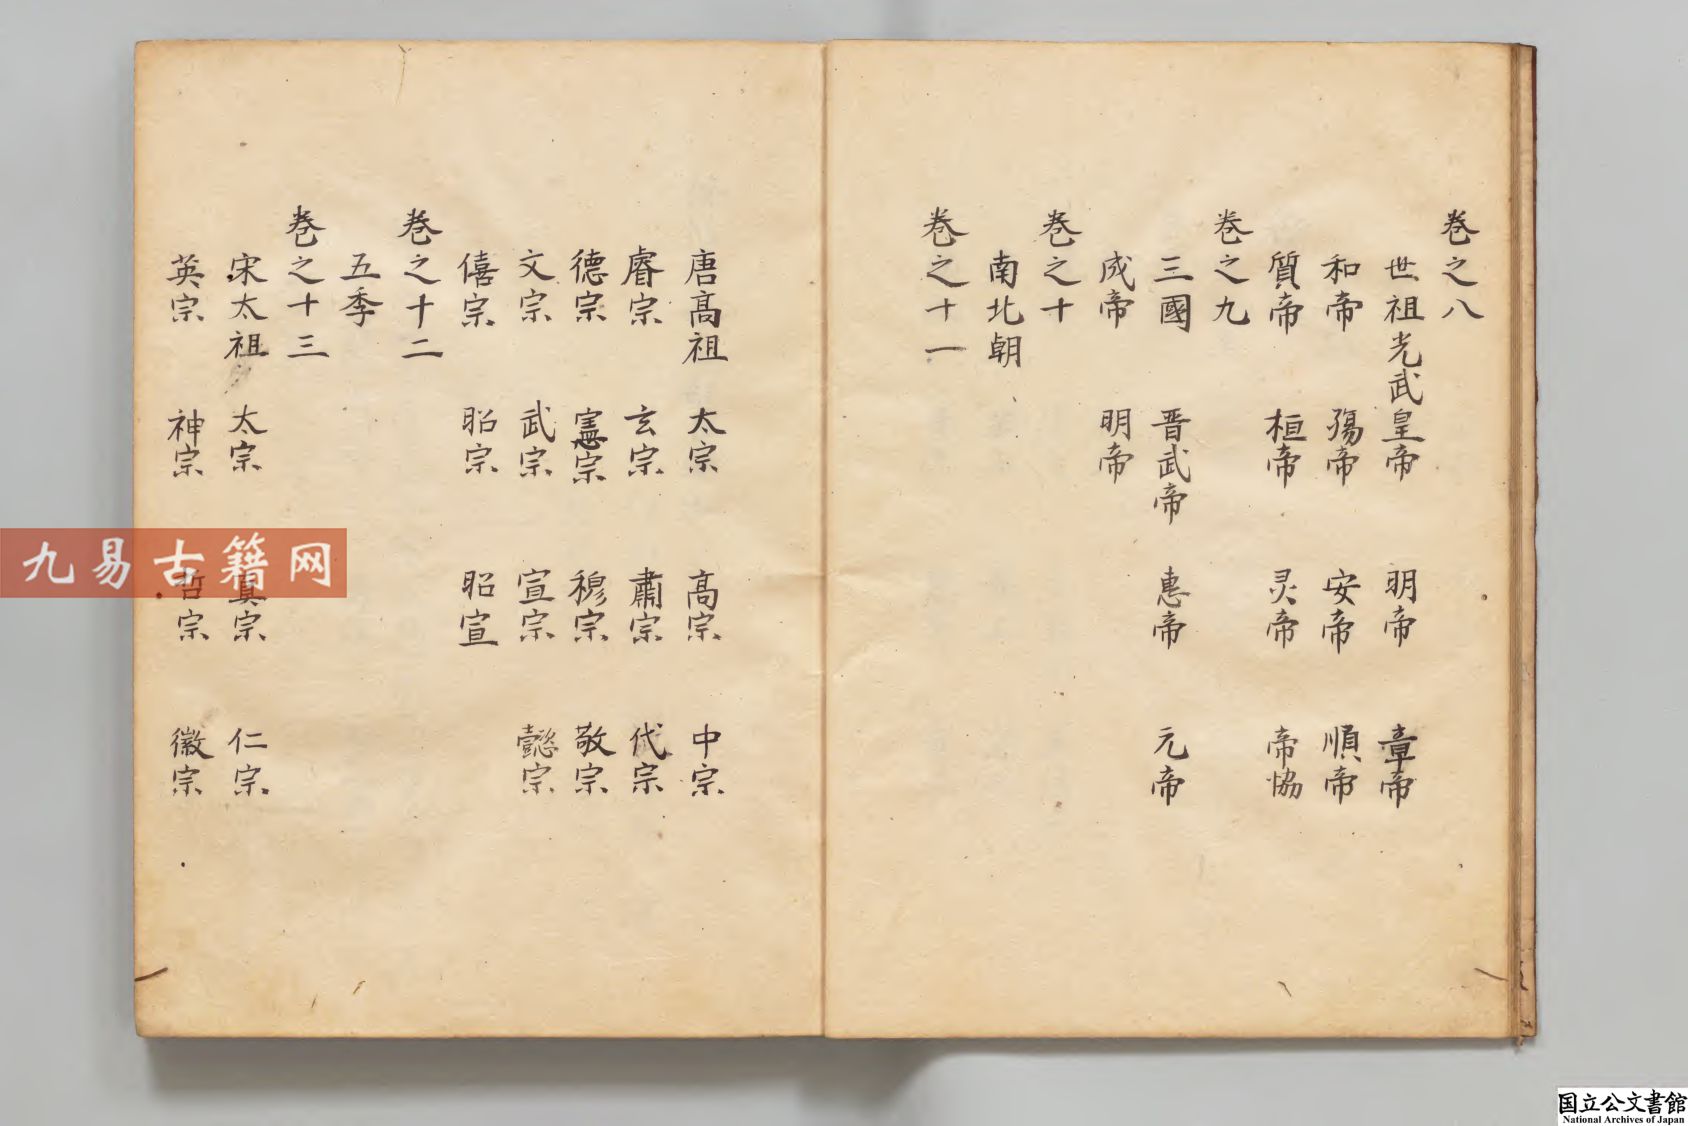 卷之八
世祖光武皇帝 明帝 章帝
和帝 殤帝 安帝 順帝
質帝 桓帝 灵帝 帝協
卷之九
三國 晋武帝 惠帝 元帝
成帝 明帝
卷之十
南北朝
卷之十一
唐高祖 太宗 高宗 中宗
睿宗 玄宗 肅宗 代宗
德宗 憲宗 穆宗 敬宗
文宗 武宗 宣宗 懿宗
僖宗 昭宗 昭宣
卷之十二
五季
卷之十三
宋太祖 太宗 真宗 仁宗
英宗 神宗 哲宗 徽宗
九易古籍网
国立公文書館
National Archives of Japan